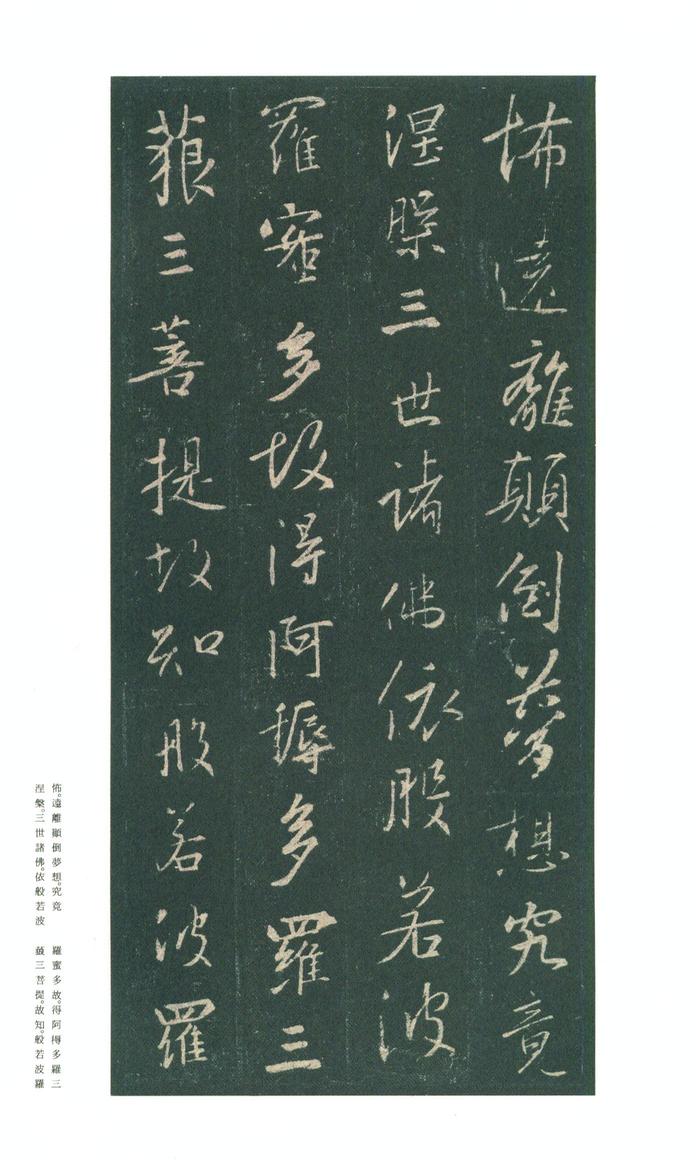 怖遠離顛倒夢想究竟
涅槃三世諸佛依般若波
羅蜜多故得阿耨多羅三
藐三菩提故知般若波羅
怖。遠離顛倒夢想。究竟
涅槃。三世諸佛。依般若波
羅蜜多故。得阿耨多羅三
藐三菩提。故知。般若波羅